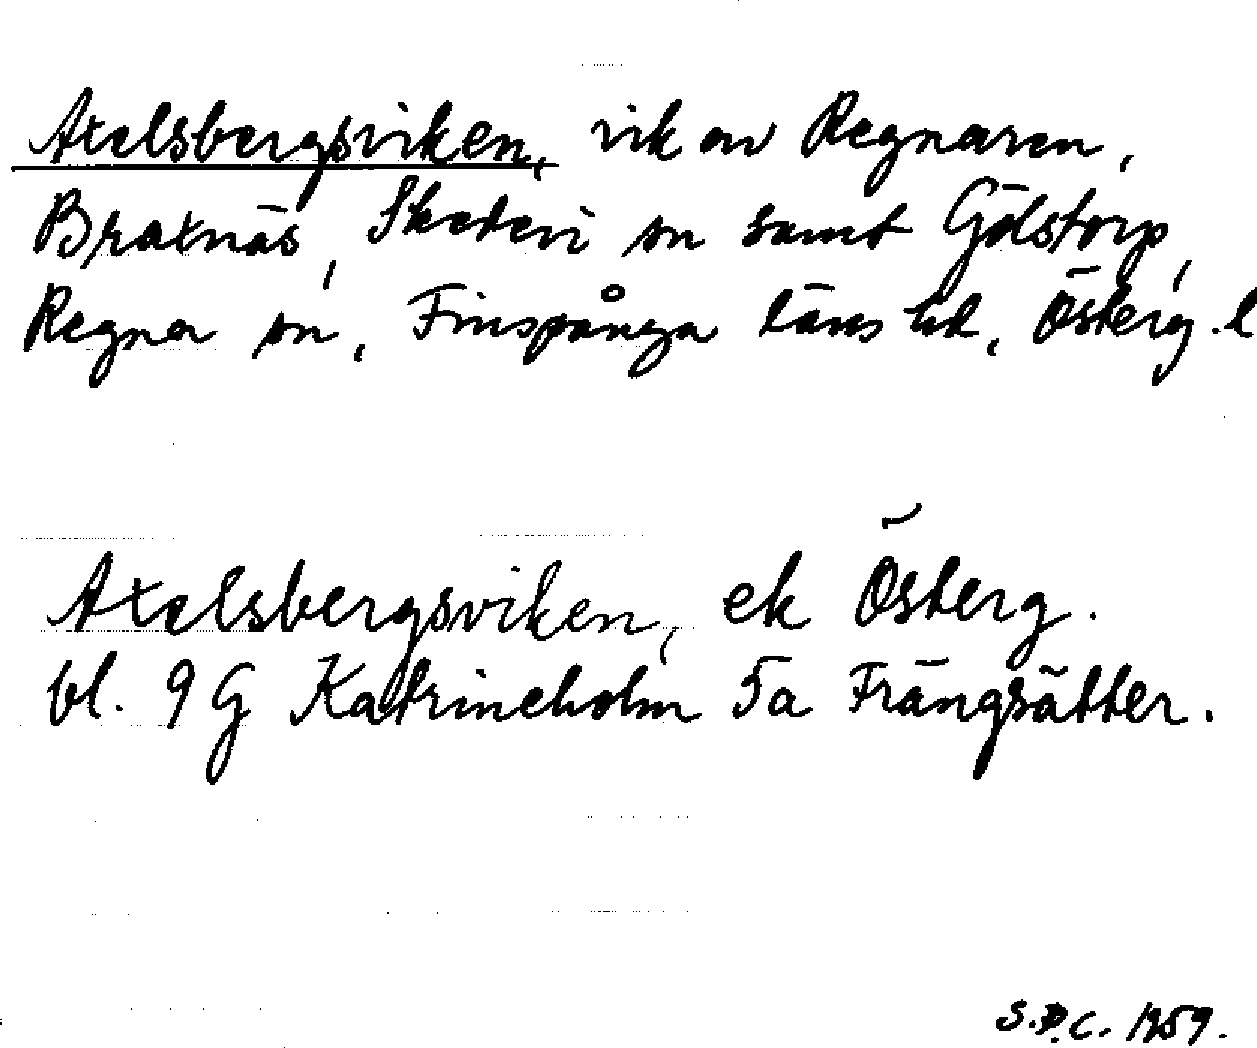 Axelsbergsviken, vik av Regnaren,
Braxnäs, Skedevi sn samt Gölstorp,
Regna sn, Finspånga läns hd, Österg. l
Axelsbergsviken, ek Österg.
bl. 9 G Katrineholm 5a Frängsätter.
S.P.C. 1959.